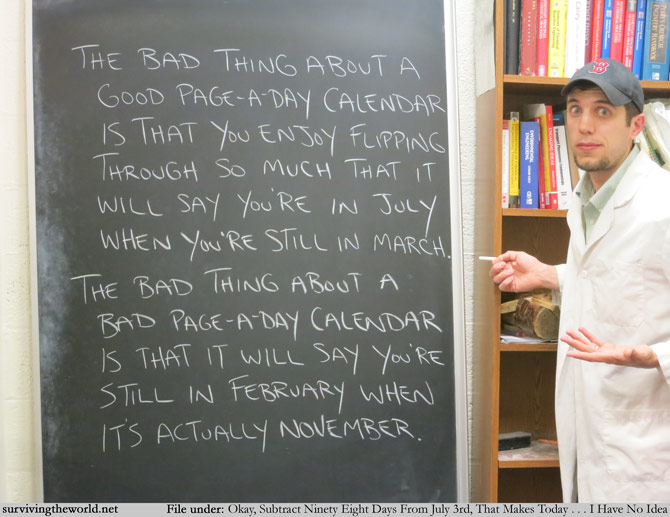 THE BAD THING ABOUT A
GOOD PAGE-A-DAY CALENDAR
IS THAT YOU ENJOY FLIPPING
THROUGH SO MUCH THAT IT
WILL SAY YOU'RE IN JULY
WHEN YOU'RE STILL IN MARCH.
THE BAD THING ABOUT A
BAD PAGE-A-DAY CALENDAR
IS THAT IT WILL SAY YOU'RE
STILL IN FEBRUARY WHEN
IT'S ACTUALLY NOVEMBER.
B
survivingtheworld.net
File under: Okay, Subtract Ninety Eight Days From July 3rd, That Makes Today . . . I Have No Idea